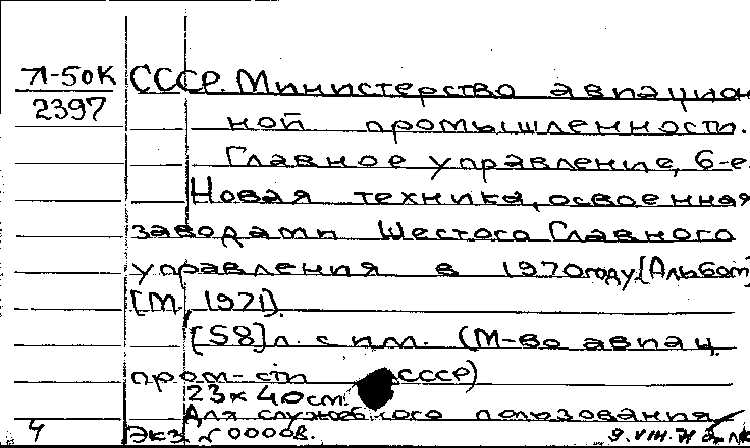 Л-50К СССР. Министерство авиацион
2397 ной промышленности.
Главное управление, 6-е.
Новая техника, освоенная
заводами Шестого Главного
управления в 1970 году. [Альбом]
[М. 1971].
[58] л. с илл. (М-во авиац.
пром-сти СССР)
23 х 40 см.
Для служебного пользования
4 Экз. № 00008. 9.VIII.71